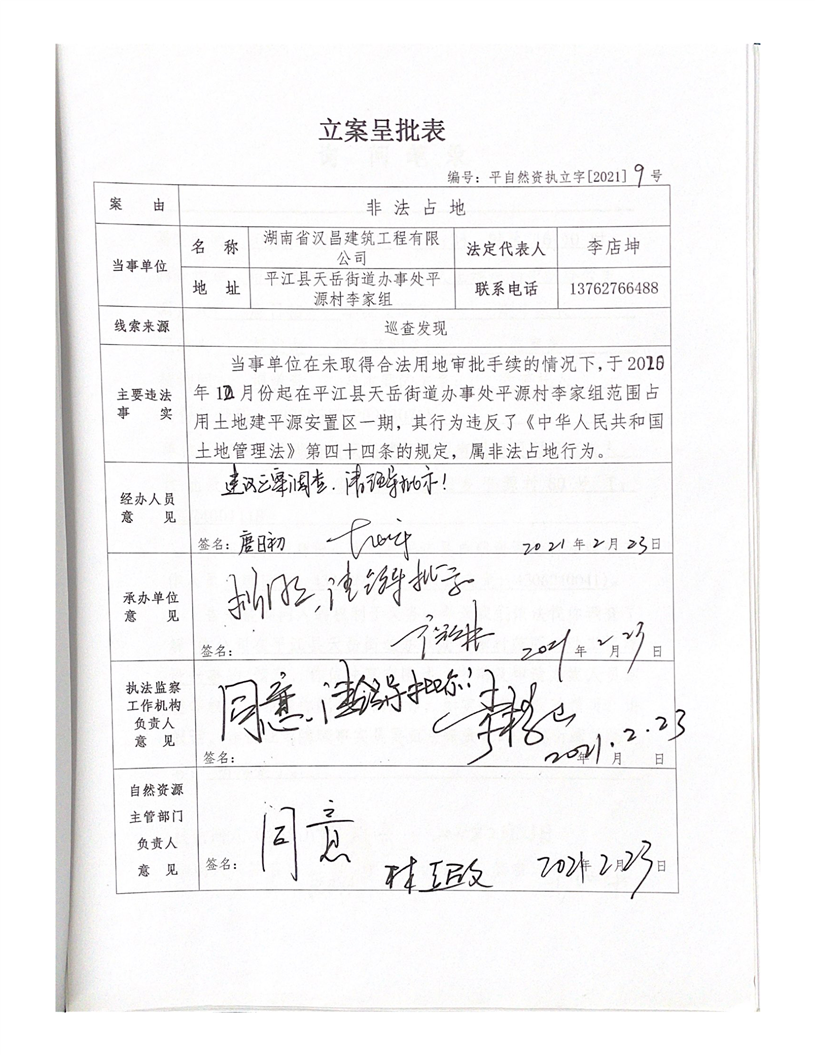 立案呈批表
编号：平自然资执立字[2021] 9 号
案 由 非法占地
当事单位 名 称 湖南省汉昌建筑工程有限公司 法定代表人 李店坤
地 址 平江县天岳街道办事处平源村李家组 联系电话 13762766488
线索来源 巡查发现
主要违法事 实
当事单位在未取得合法用地审批手续的情况下，于
年 月份起在平江县天岳街道办事处平源村李家组范围占
用土地建平源安置区一期，其行为违反了《中华人民共和国
土地管理法》第四十四条的规定，属非法占地行为。
经办人员意 见
建议立案调查，请领导批示！
签名：唐日初 2021年2月23日
承办单位意 见
请领导批示
签名： 2021年2月23日
执法监察工作机构负责人意 见
同意，请领导批示！
签名： 2021.2.23 年 月 日
自然资源主管部门负责人意 见
同意
签名： 2021年2月23日